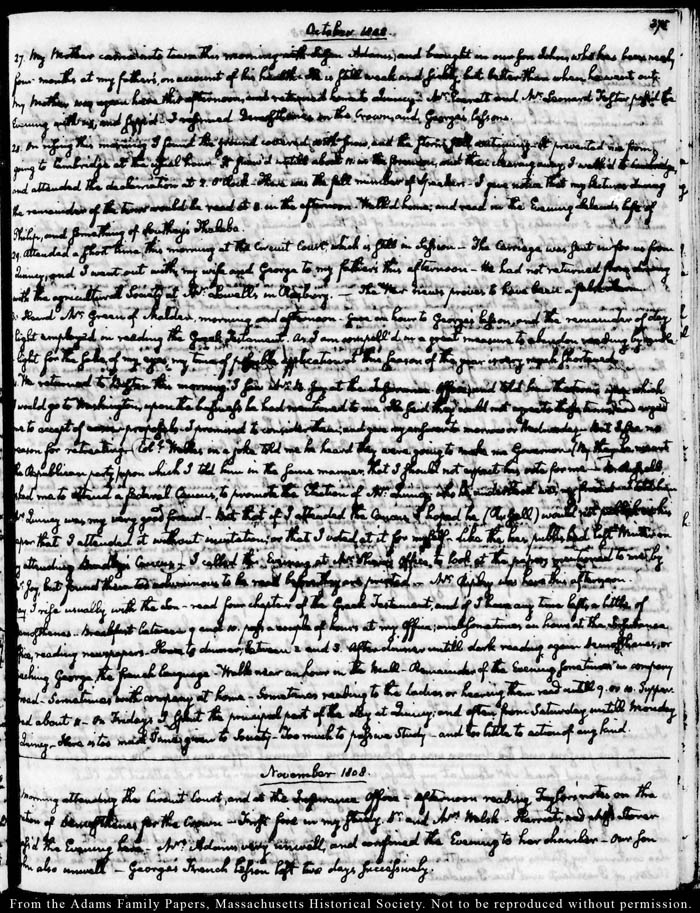 October 1808.
375
27. My Mother came into town this morning with Susan Adams, and brought in our son John, who has been nearly
four months at my father's, on account of his health. He is still weak and sickly, but better than when he went out.
My Mother was again here this afternoon, and returned home to Quincy. Mr. Everett and Mr. Leonard Foster pass'd the
Evening with us, and supp'd. I resumed Demosthenes on the Crown, and George's lessons.
28. On rising this morning I found the ground covered with snow, and the storm still continuing. It prevented me from
going to Cambridge at the usual hour. It snow'd untill about 10 in the forenoon, and then clearing away, I walk'd to Cambridge,
and attended the declamation at 2. O'Clock. There was the full number of speakers. I gave notice that my lectures during
the remainder of the term would be read at 3. in the afternoon. Walked home; and read in the Evening Leland's life of
Philip, and something of Southey's Thalaba.
29. Attended a short time, this morning at the Circuit Court, which is still in session. The Carriage was sent in for us from
Quincy, and I went out with my wife and George to my father's this afternoon. He had not returned from dining
with the agricultural Society at Mr. Lowell's in Roxbury. — The War news proves to have been a fabrication.
Heard Mr. Green of Malden, morning and afternoon. Gave an hour to George's lesson, and the remainder of day
light employ'd in reading the Greek Testament. As I am compell'd in a great measure to abandon reading by candle
light for the sake of my eyes, my time of application at this season of the year is very much shortened.
We returned to Boston this morning. I saw Mr. Joy at the Insurance Office, and told him the terms upon which
I would go to Washington, upon the business he had mentioned to me. He said they would not agree to those terms, and urged
me to accept of proposals. I promised to consider them, and give my answer tomorrow or Wednesday. But I see no
reason for retracting. Coll. Walker in a joke told me he heard they were going to make me Governor. By they he meant
the Republican party, upon which I told him in the same manner, that I should not expect his vote for me. Mr. Russell,
asked me to attend a federal Caucus, to promote the Election of Mr. Quincy, who he understood was my friend. I told him
Mr. Quincy was my very good friend. But that if I attended the Caucus I hoped he (Russell) would not publish in his
paper that I attended it without invitation, or that I voted at it for myself. Like the lies published last Winter on
my attending Bradley's Caucus. I called this Evening at Mr. Shaw's Office, to look at the papers mentioned to me, by
Mr. Joy, but found them too voluminous to be read before they are printed. Mr. Ripley was here this afternoon.
Day. I rise usually with the Sun — read four chapters of the Greek Testament, and if I have any time left, a little of
Demosthenes. Breakfast between 9 and 10. pass a couple of hours at my Office, and sometimes an hour at the Insurance
Office, reading newspapers. Home to dinner, between 2 and 3. After dinner untill dark reading again Demosthenes, or
teaching George, the french language. Walk near an hour in the Mall. Remainder of the Evening sometimes in company
abroad. Sometimes with company at home. Sometimes reading to the ladies or hearing them read untill 9. or 10. Supper.
Bed about 11. On Fridays I spend the principal part of the day at Quincy; and often from Saturday untill Monday
Quincy. There is too much time given to Society. Too much to passive Study — and too little to action of any kind.
November 1808.
Morning attending the Circuit Court, and at the Insurance Office. Afternoon reading Taylor's notes on the
oration of Demosthenes for the Crown. First fire in my Study. Dr. and Mrs. Welsh. Harriet, and
pass'd the Evening here. Mrs. Adams very unwell, and confined the Evening to her chamber. Our son
John also unwell. George's French lesson lost two days successively.
From the Adams Family Papers, Massachusetts Historical Society. Not to be reproduced without permission.